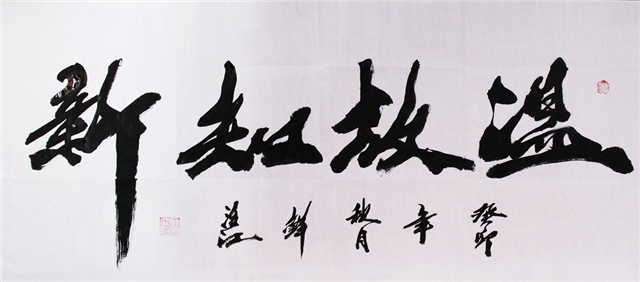 温故知新
癸卯年秋月